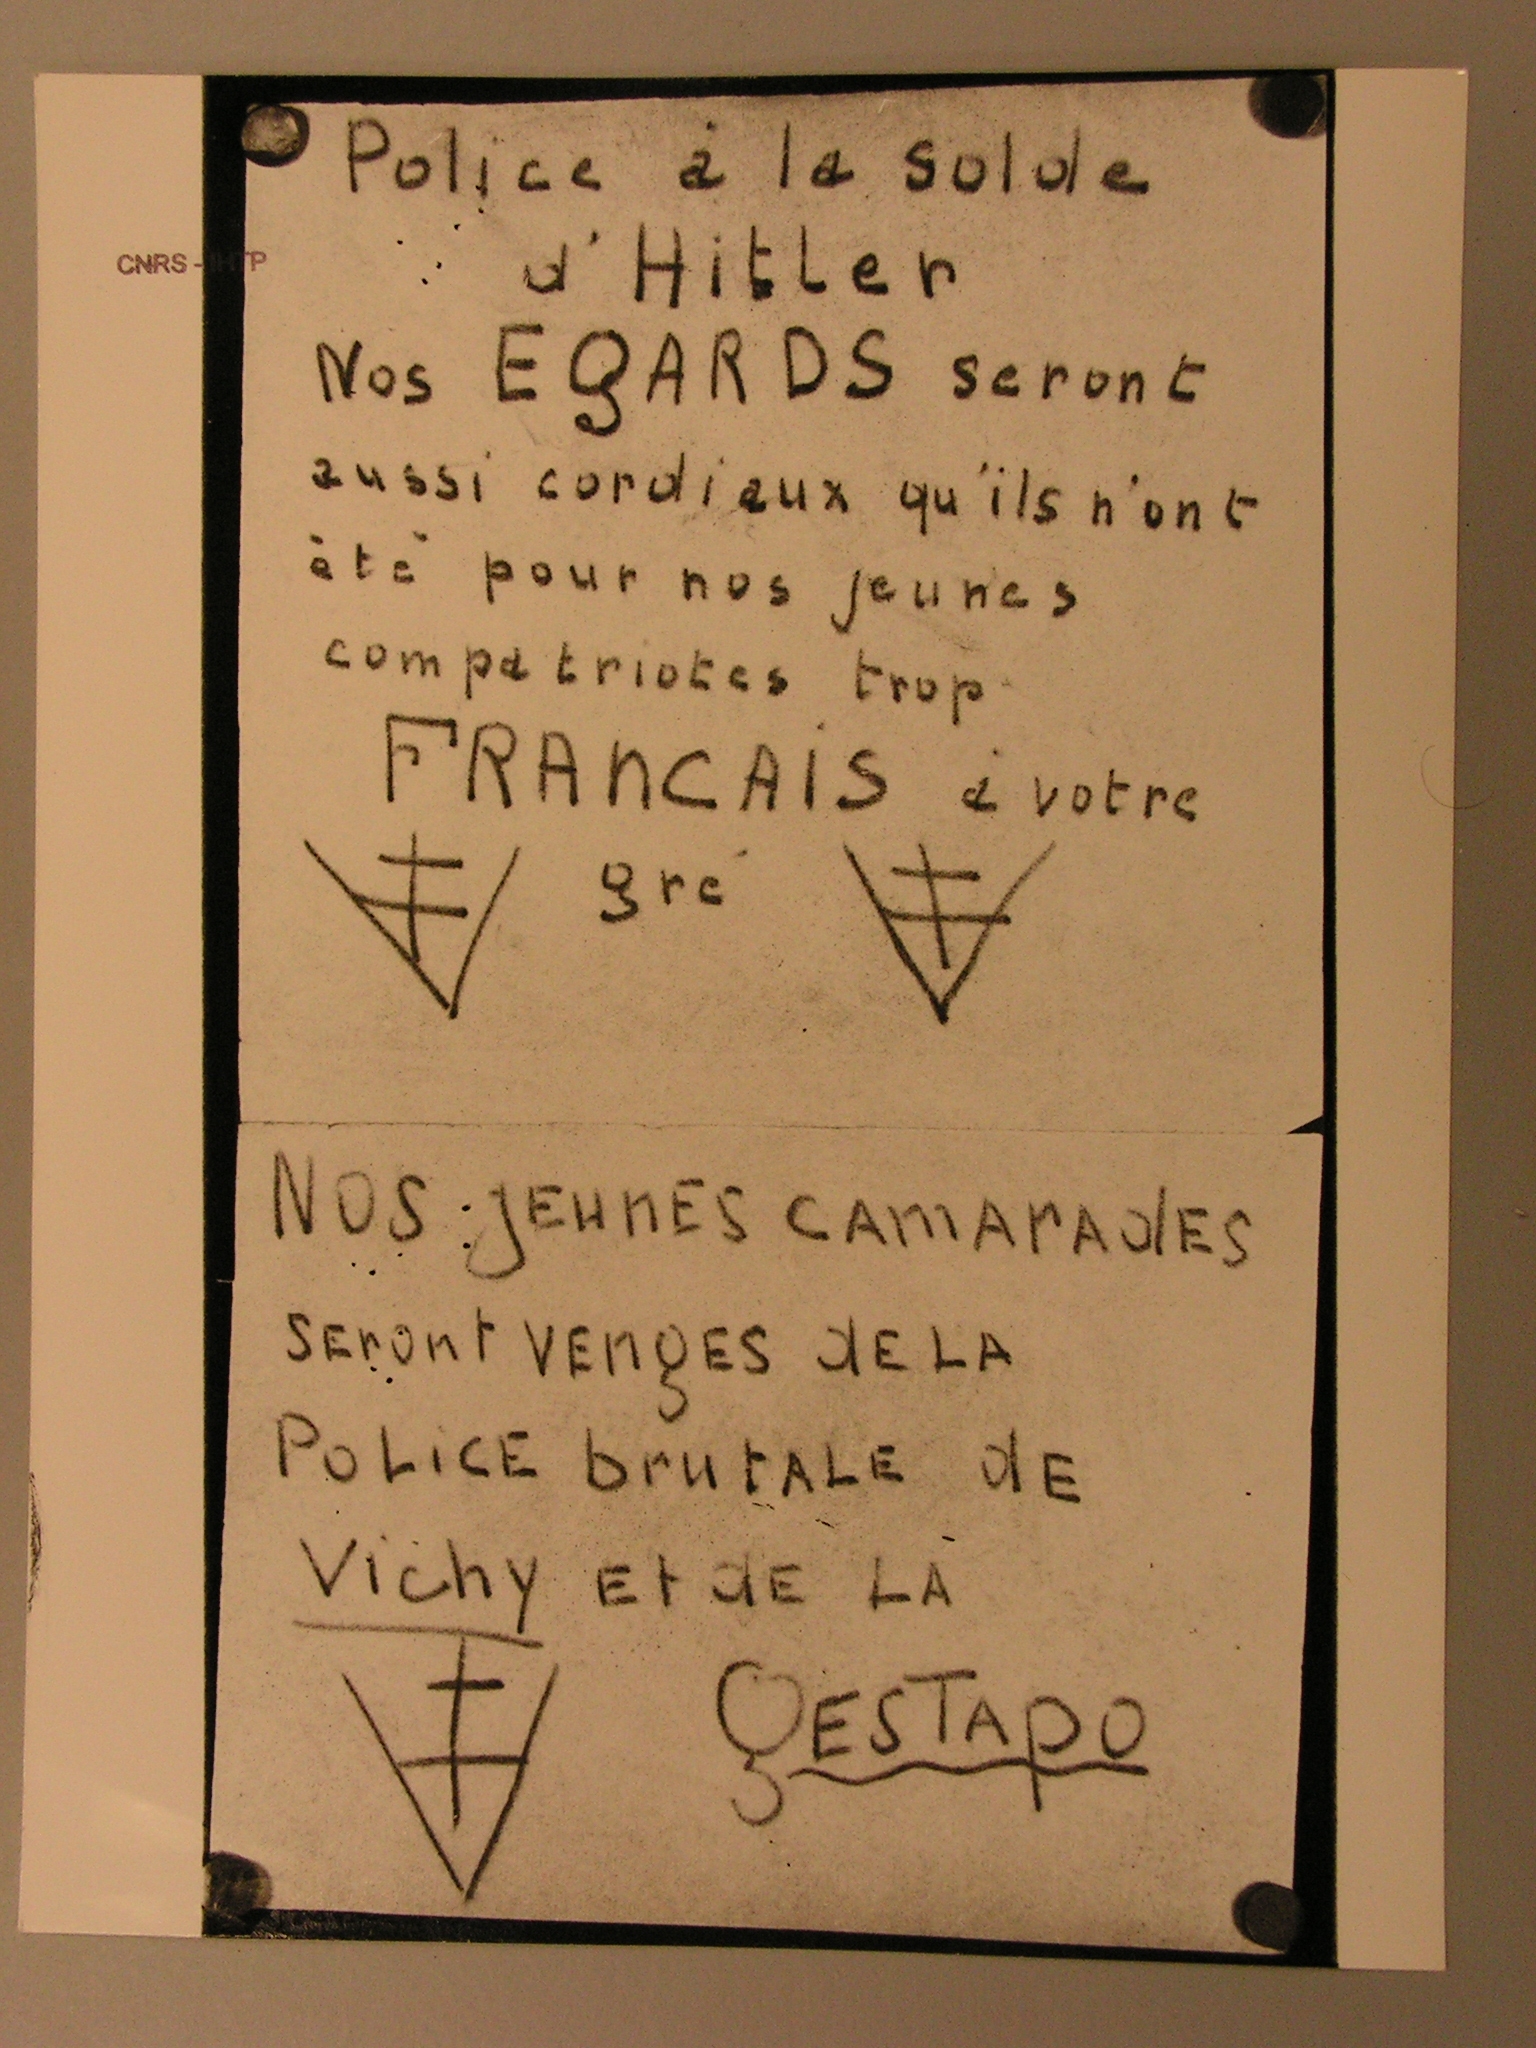 Police à la solde
d'Hitler
CNRS - IHTP
Nos EGARDS seront
aussi cordiaux qu'ils n'ont
été pour nos jeunes
compatriotes trop
FRANCAIS à votre
gré
NOS jEUNES CAMARAdES
SEront VEngES dE LA
POLiCE brutALE dE
Vichy Et dE LA
gESTApO